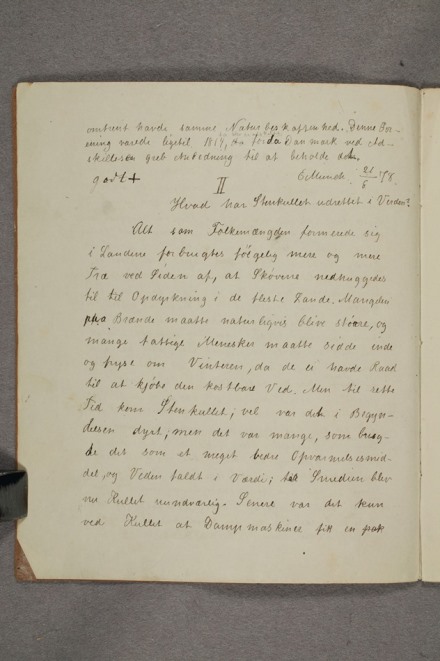 omtrent havde samme Naturbeskaffenhed. Denne For-
ening varede ligetil 1814, da Danmark ved Ad-
skillelsen greb Anledning til at beholde dem.
godt+ EMunch 21/5 78.
II
Hvad har Stenkullet udrettet i Verden?
Alt som Folkemængden formerede sig
i Landene forbrugtes følgelig mere og mere
Træ ved Siden af, at Skovene nedhuggedes
til Opdyrkning i de fleste Lande. Mangden
paa Brænde maatte naturligvis blive større, og
mange fattige Menesker maatte sidde inde
og fryse om Vinteren, da de ei havde Raad
til at kjøbe den kostbare Ved. Men til rette
Tid kom Stenkullet; vel var det i Begyn-
delsen dyrt, men det var mange, som brug-
de det som et meget bedre Opvarmelsesmid-
del, og Veden faldt i Værdi; Smedien blev
nu Kullet nundværlig. Senere var det kun
ved Kullet at Dampmaskiner fik en